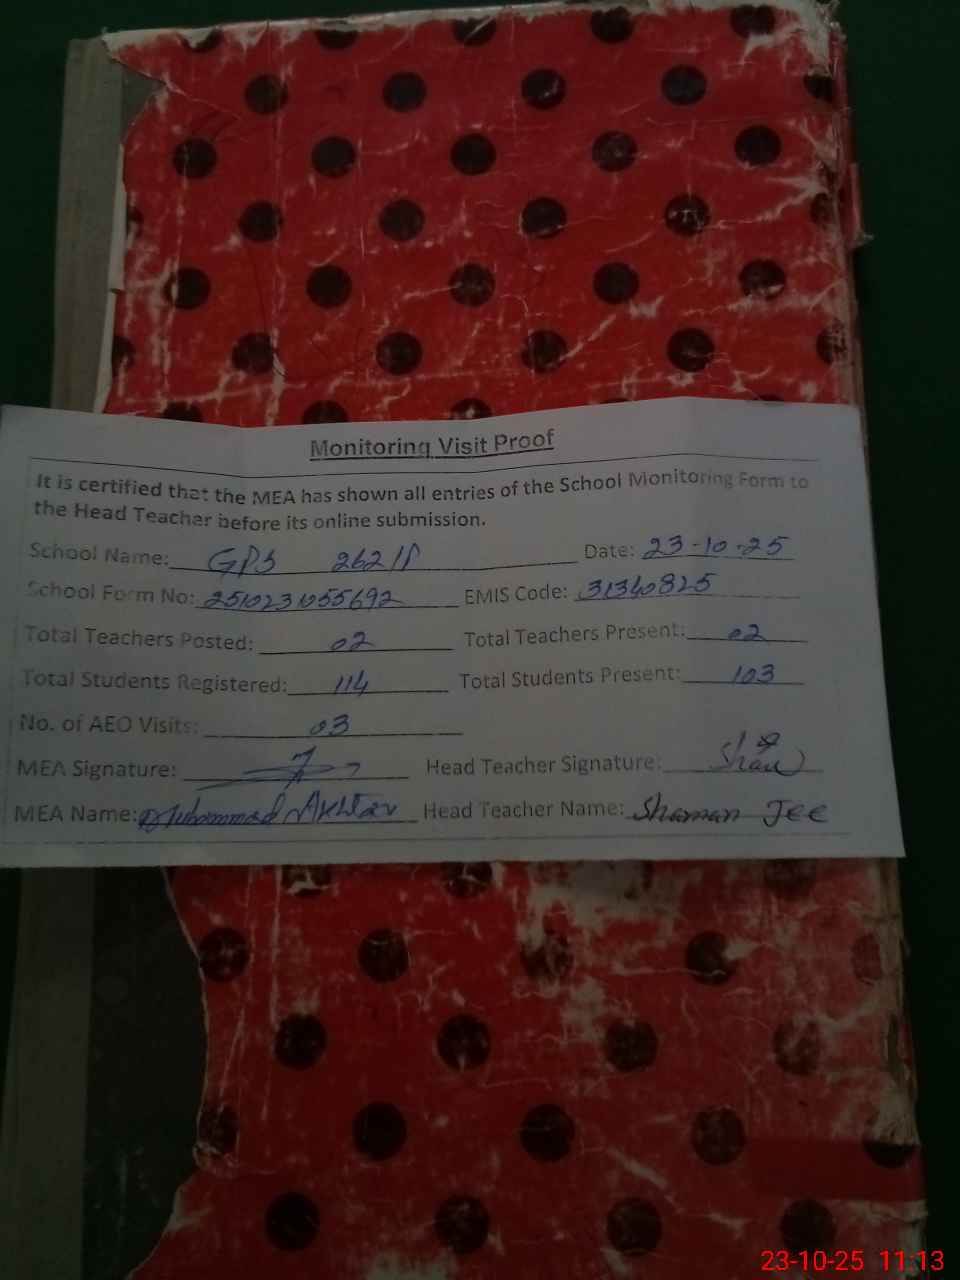 Monitoring Visit Proof
It is certified that the MEA has shown all entries of the School Monitoring Form to
the Head Teacher before its online submission.
School Name: GPS 262/P Date: 23-10-25
School Form No: 2510231055692 EMIS Code: 31340825
Total Teachers Posted: 02 Total Teachers Present: 02
Total Students Registered: 114 Total Students Present: 103
No. of AEO Visits: 03
MEA Signature: Head Teacher Signature:
MEA Name: Muhammad Akhtar Head Teacher Name: Shaman Jee
23-10-25 11:13